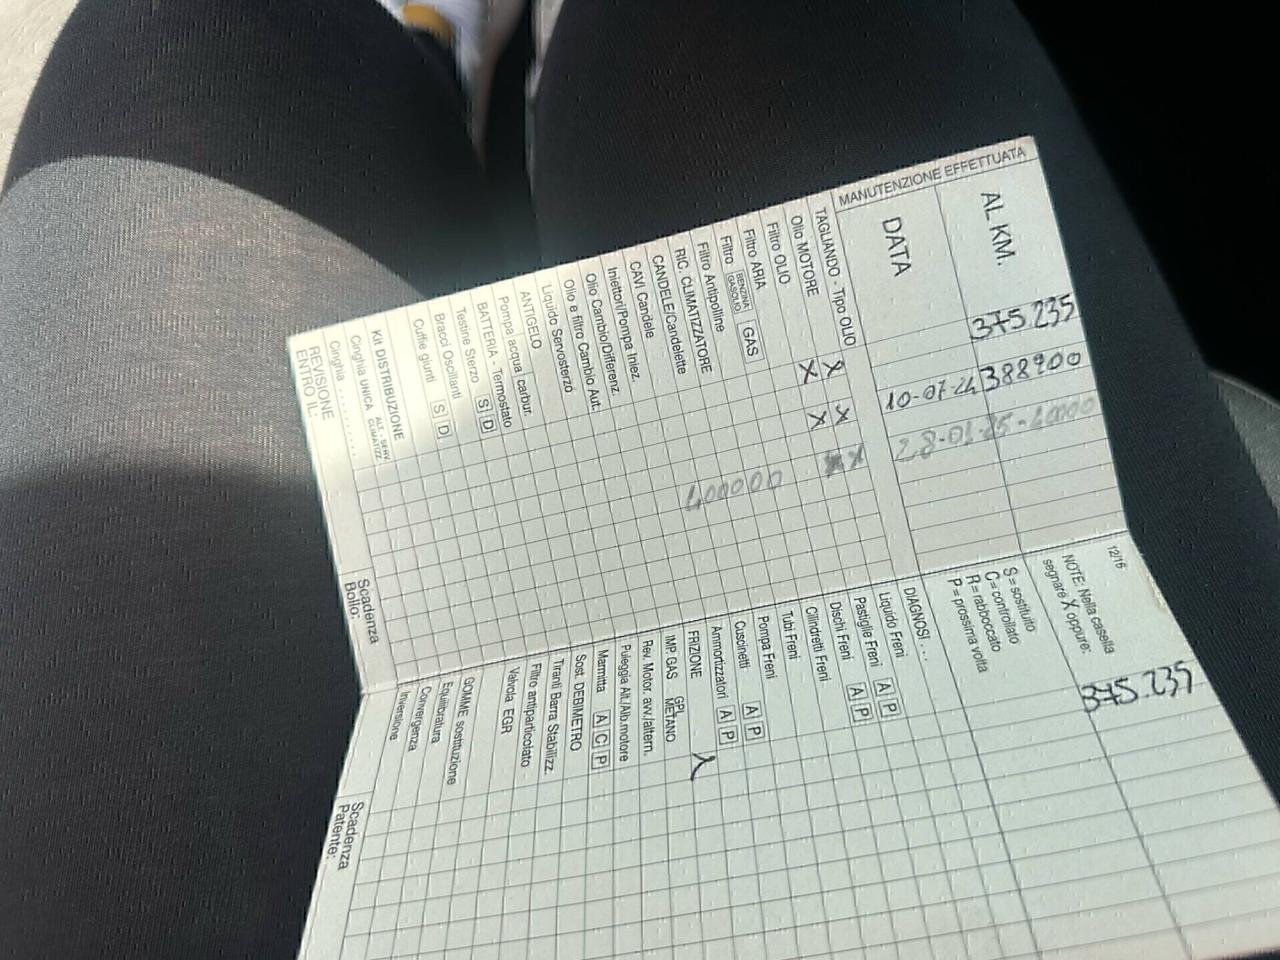 MANUTENZIONE EFFETTUATA
AL KM. 375.235 388900
DATA 10-07-24
TAGLIANDO - Tipo OLIO X X
Olio MOTORE X X
Filtro OLIO
Filtro ARIA
Filtro BENZINA GASOLIO GAS
Filtro Antipolline
RIC. CLIMATIZZATORE
CANDELE/Candelette
CAVI Candele
Iniettori/Pompa Iniez.
Olio Cambio/Differenz.
Olio e filtro Cambio Aut.
Liquido Servosterzo
ANTIGELO
Pompa acqua carbur.
BATTERIA - Termostato
Testine Sterzo S D
Bracci Oscillanti
Cuffie giunti S D
Kit DISTRIBUZIONE
Cinghia UNICA ALT. - SERV. CLIMATIZZ.
Cinghia ..........
REVISIONE
ENTRO IL:
Scadenza
Bollo:
12/16
NOTE: Nella casella
segnare X oppure:
S = sostituito
C = controllato
R = rabboccato
P = prossima volta
375.235
DIAGNOSI ...
Liquido Freni
Pastiglie Freni A P
Dischi Freni A P
Cilindretti Freni
Tubi Freni
Pompa Freni
Cuscinetti A P
Ammortizzatori A P
FRIZIONE
IMP. GAS GPL METANO
Rev. Motor. avv./altern.
Puleggia Alt./Alb.motore
Marmitta A C P
Sost. DEBIMETRO
Tiranti Barra Stabilizz.
Filtro antiparticolato
Valvola EGR
GOMME sostituzione
Equilibratura
Convergenza
Inversione
Scadenza
Patente: